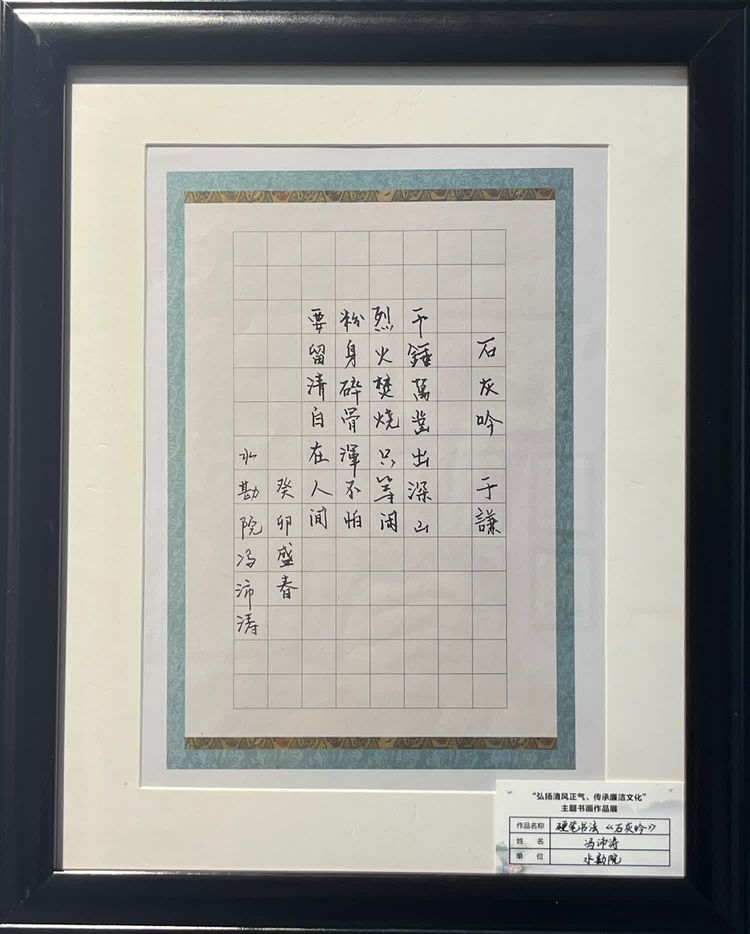 石灰吟 于謙
千錘萬鑿出深山
烈火焚烧只等闲
粉身碎骨渾不怕
要留清白在人间
癸卯盛春
水勘院冯沛涛
“弘扬清风正气、传承廉洁文化”
主题书画作品展
作品名称 硬笔书法《石灰吟》
姓名 冯沛涛
单位 水勘院